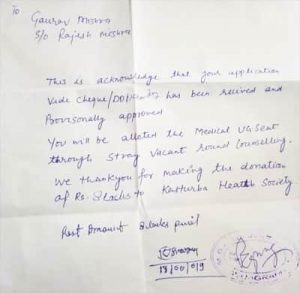 To
Gaurav Mishra
S/o Rajesh Mishra
This is acknowledge that your application
Vide Cheque/DD/ has been recived and
Provisonally approved
You will be alloted the Medical UG Seat
through Stray Vacant round Counselling.
We thankyou for making the donation
of Rs. 5lacks to Kasturba Health Society
Rest Amount